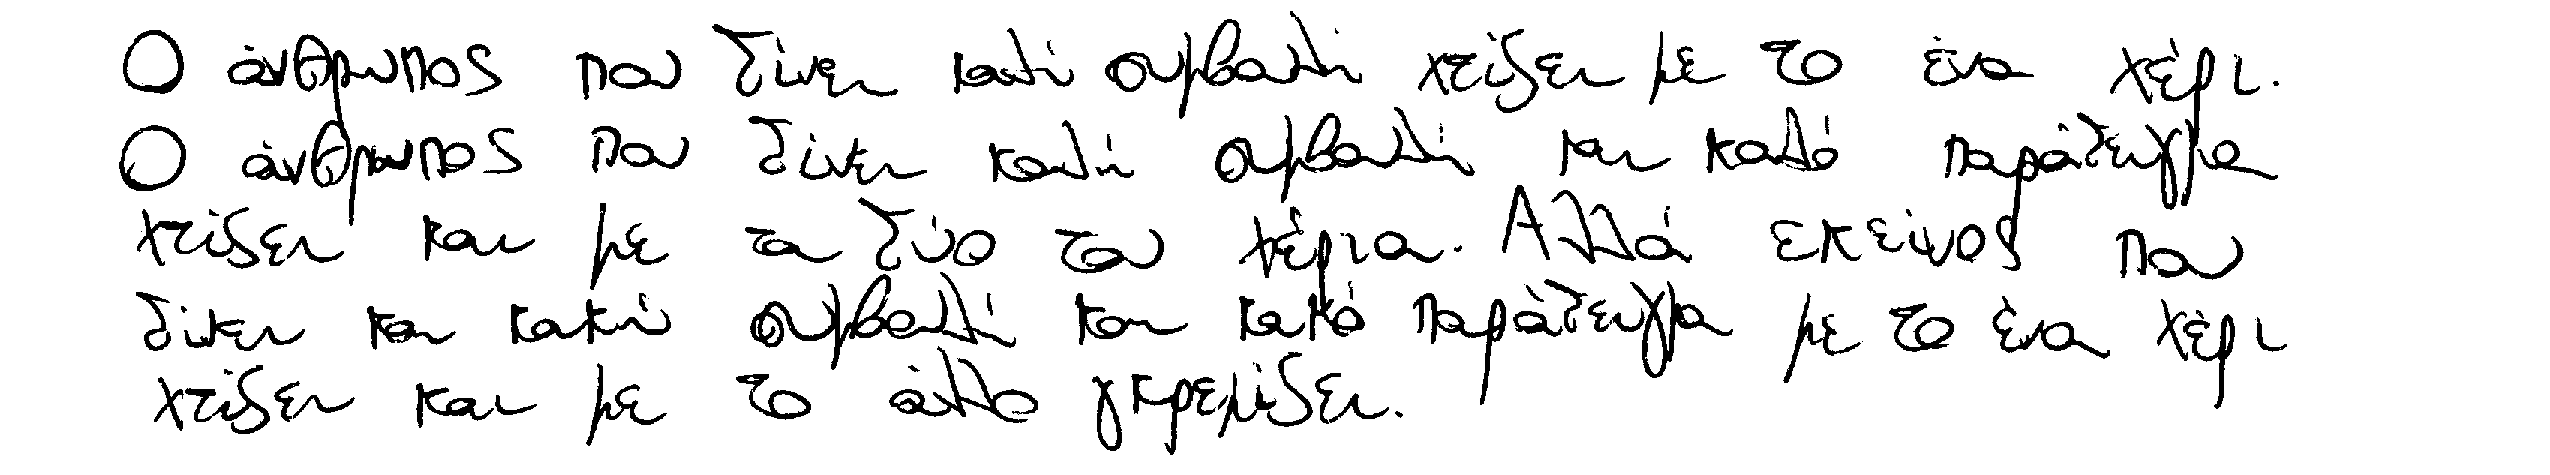 Ο άνθρωπος που δίνει καλή συμβολή χτίζει με το ένα χέρι.
Ο άνθρωπος που δίνει καλή συμβολή και καλό παράδειγμα
χτίζει και με τα δύο του χέρια. Αλλά εκείνος που
δίνει και κακή συμβολή και κακό παράδειγμα με το ένα χέρι
χτίζει και με το άλλο γκρεμίζει.